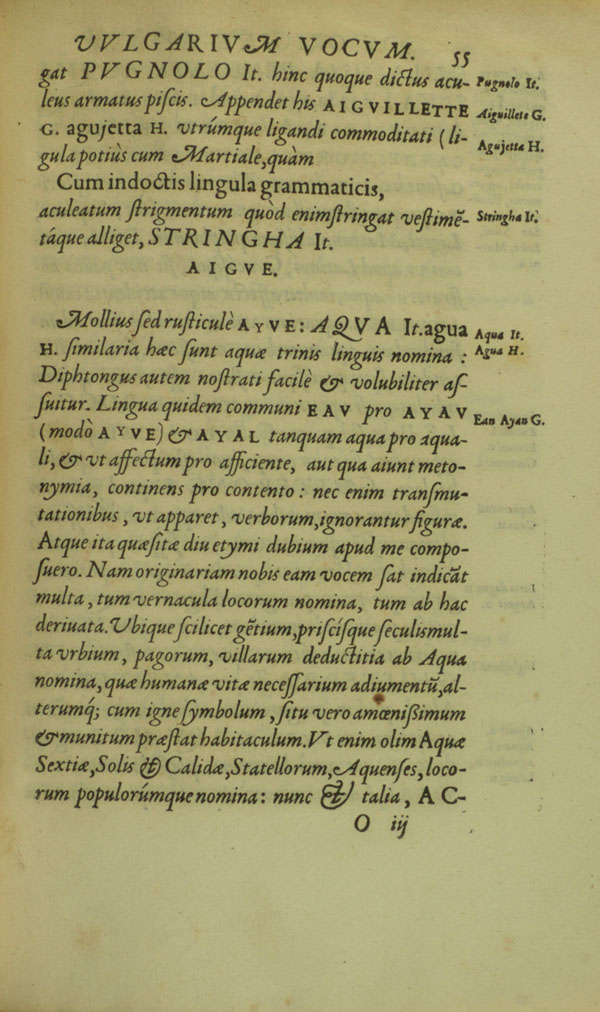 VVLGARIVM VOCVM. 55
gat PVGNOLO It. hinc quoque dictus acu-
Pugnolo It.
leus armatus piſcis. Appendet his AIGVILLETTE
Aiguillete G.
G. agujetta H. vtrúmque ligandi commoditati (li-
Agujetta H.
gula potiùs cum Martiale, quàm
Cum indoctis lingula grammaticis,
aculeatum ſtrigmentum quòd enim ſtringat veſtimē-
Stringha It.
táque alliget, STRINGHA It.
AIGVE.
Mollius ſed ruſticulè AYVE: AQVA It. agua
Aqua It.
H. ſimilaria hæc ſunt aquæ trinis linguis nomina :
Agua H.
Diphtongus autem noſtrati facilè & volubiliter aſ-
ſuitur. Lingua quidem communi EAV pro AYAV
Eau Ayau G.
(modò AYVE) & AYAL tanquam aqua pro aqua-
li, & vt affectum pro afficiente, aut qua aiunt meto-
nymia, continens pro contento : nec enim tranſmu-
tationibus, vt apparet, verborum, ignorantur figuræ.
Atque ita quæſitæ diu etymi dubium apud me compo-
ſuero. Nam originariam nobis eam vocem ſat indicāt
multa, tum vernacula locorum nomina, tum ab hac
deriuata. Vbique ſcilicet gētium, priſciſque ſeculis mul-
ta vrbium, pagorum, villarum deductitia ab Aqua
nomina, quæ humanæ vitæ neceſſarium adiumentū, al-
terumq; cum igne ſymbolum, ſitu vero amœniſsimum
& munitum præſtat habitaculum. Vt enim olim Aquæ
Sextiæ, Solis & Calidæ, Statellorum, Aquenſes, loco-
rum populorúmque nomina : nunc & talia, AC-
O iij